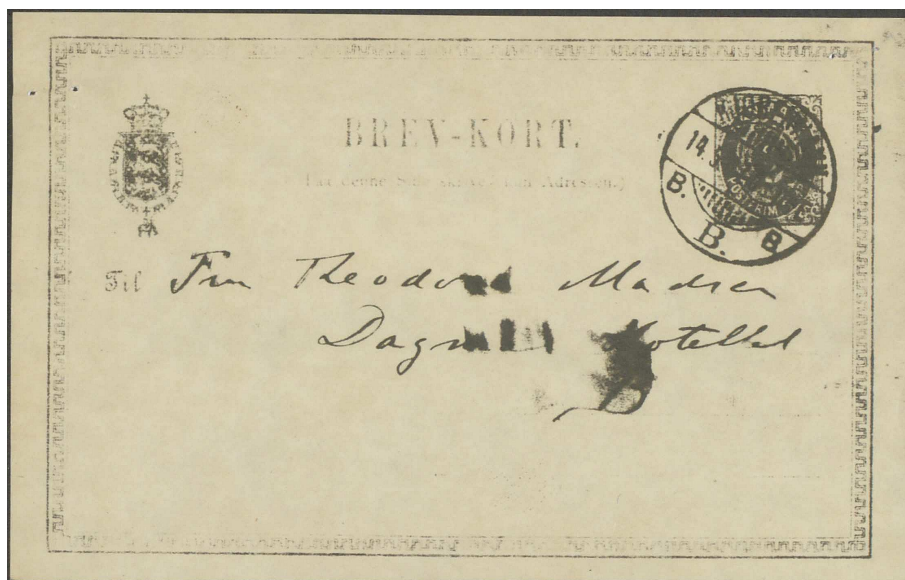 BREV-KORT.
(Paa denne Side skrives kun Adressen.)
14.3
B. B. B
Til Fru Theodora Madsen
Dagmar Hotellet